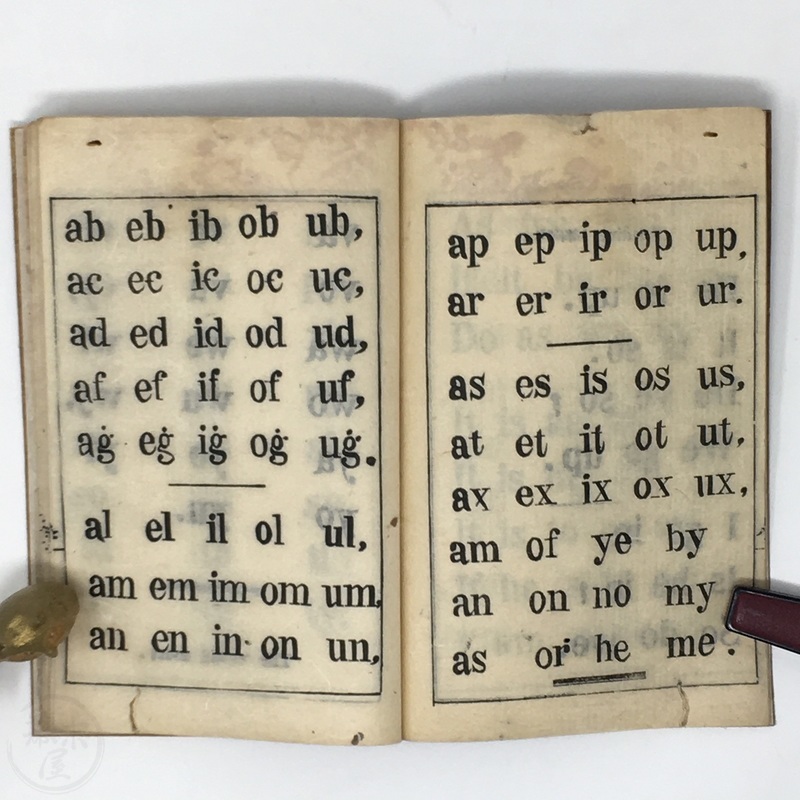 ab eb ib ob ub,
ac ec ic oc uc,
ad ed id od ud,
af ef if of uf,
ag eg ig og ug.
al el il ol ul,
am em im om um,
an en in on un,
ap ep ip op up,
ar er ir or ur.
as es is os us,
at et it ot ut,
ax ex ix ox ux,
am of ye by
an on no my
as or he me.
屋